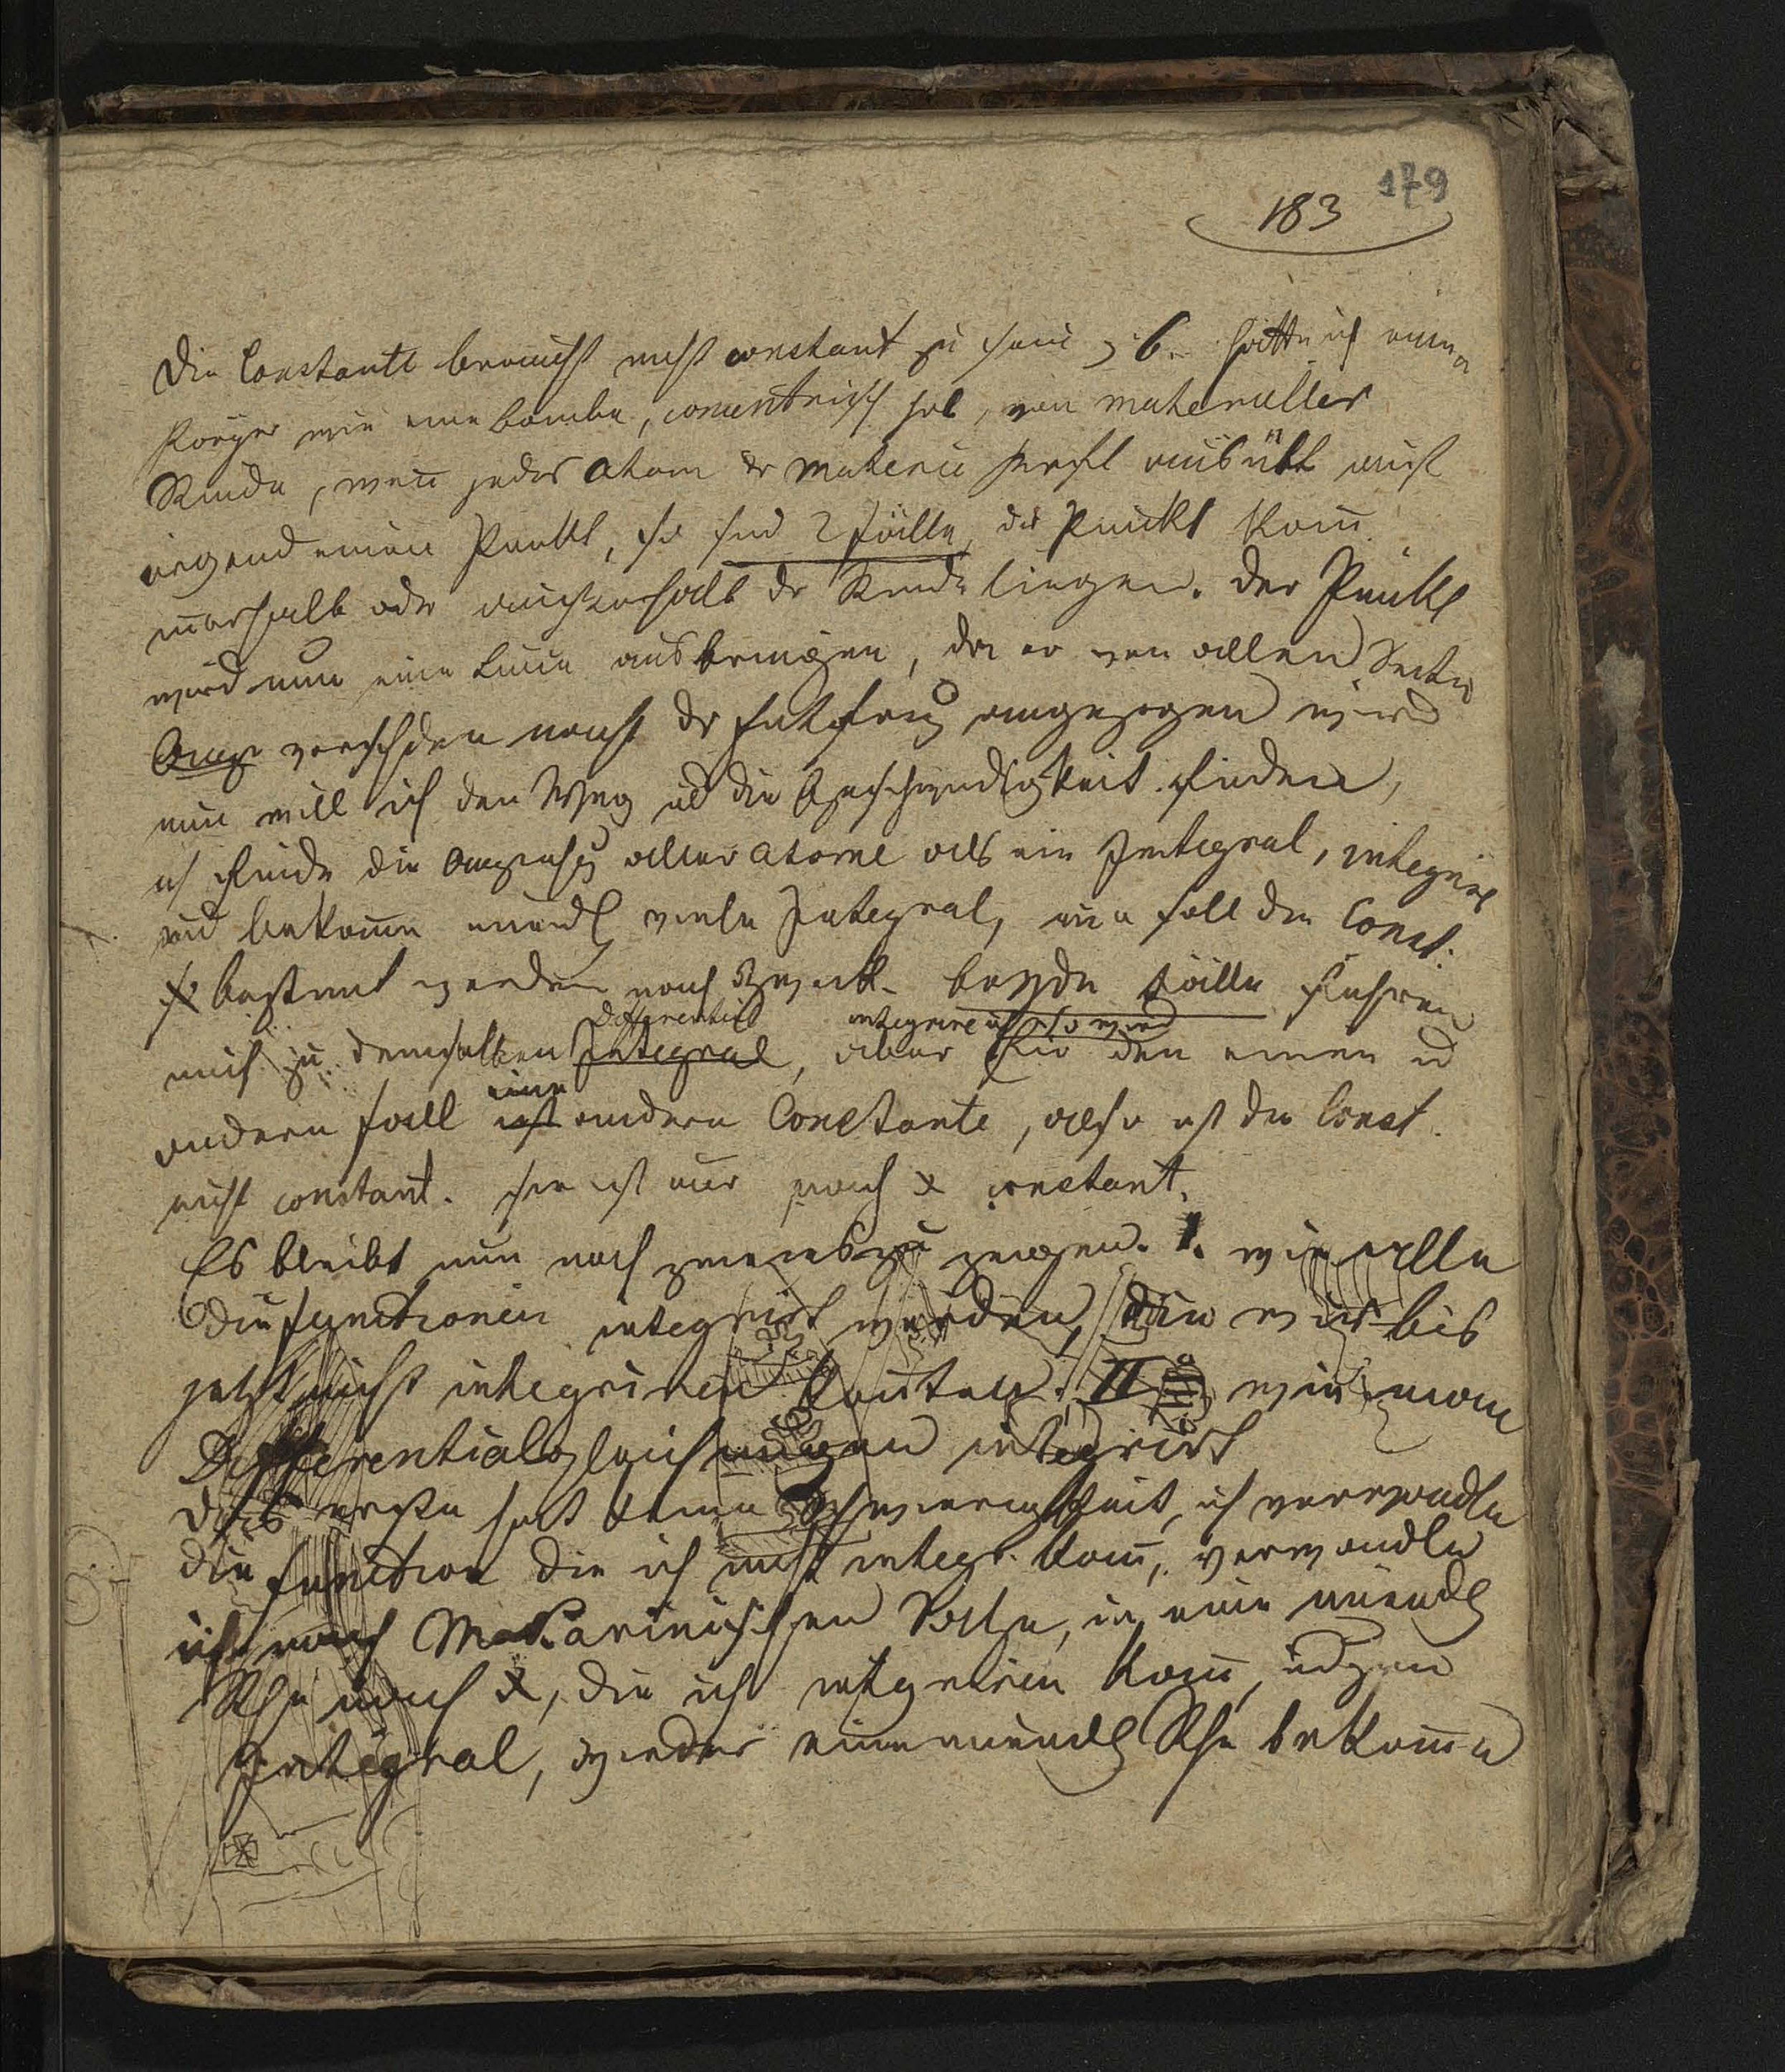 179
183
Die Constante braucht nicht constant zu sein z. B. hätte ich einen
Körper wie eine Bombe, concentrisch hol, von materieller
Rinde, wenn jedes Atom dr Materie Kraft ausübt auf
irgend einen Punkt, so sind 2 Fälle, der Punkt kann
innerhalb oder außerhalb dr Rinde liegen. Der Punkt
wird nun eine Linie, da er von allen Seiten
verschden nach dr Entferng angezogen wird
nun will ich den Weg ud die Geschwindigkeit finden,
ich finde die Anziehg aller Atome als ein Integral, integrire
und bekomme unendl viele Integral, nun soll die Const.
bestimt werden nach Zweck. beyde Fälle führen
Differential integrire ich so wird
mich zu demselben Integral, aber für den einen ud
eine
andern Fall ist andere Constante, also ist die Const.
nicht constant. sie ist nur nach x constant.
Es bleibt nun noch zweierlei zu zeigen. 1. wie alle
die Functionen integrirt werden, die wir bis
jetzt nicht integriren konnten. II wie man
Differentialgleichungen integrirt
das erste hat keine Schwierigkeit, ich verwandle
die Function die ich nicht integr. kann, verwandle
ich nach MacLaurinischen Reihe, in eine unendl
Rhe nach x, die ich integriren kann, und zum
Integral, wieder eine unendl Rhe bekomme